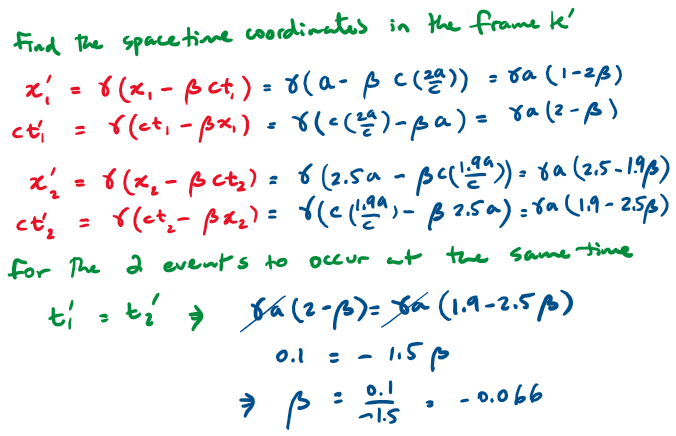 Find the spacetime coordinates in the frame k'
x₁' = γ(x₁ - βct₁) = γ(a - β c(2a/c)) = γa(1-2β)
ct₁' = γ(ct₁ - βx₁) = γ(c(2a/c) - βa) = γa(2-β)
x₂' = γ(x₂ - βct₂) = γ(2.5a - βc(1.9a/c)) = γa(2.5-1.9β)
ct₂' = γ(ct₂ - βx₂) = γ(c(1.9a/c) - β 2.5a) = γa(1.9 - 2.5β)
for the 2 events to occur at the same time
t₁' = t₂' ⇒ γa(2-β) = γa(1.9-2.5β)
0.1 = - 1.5β
⇒ β = 0.1/-1.5 = -0.066